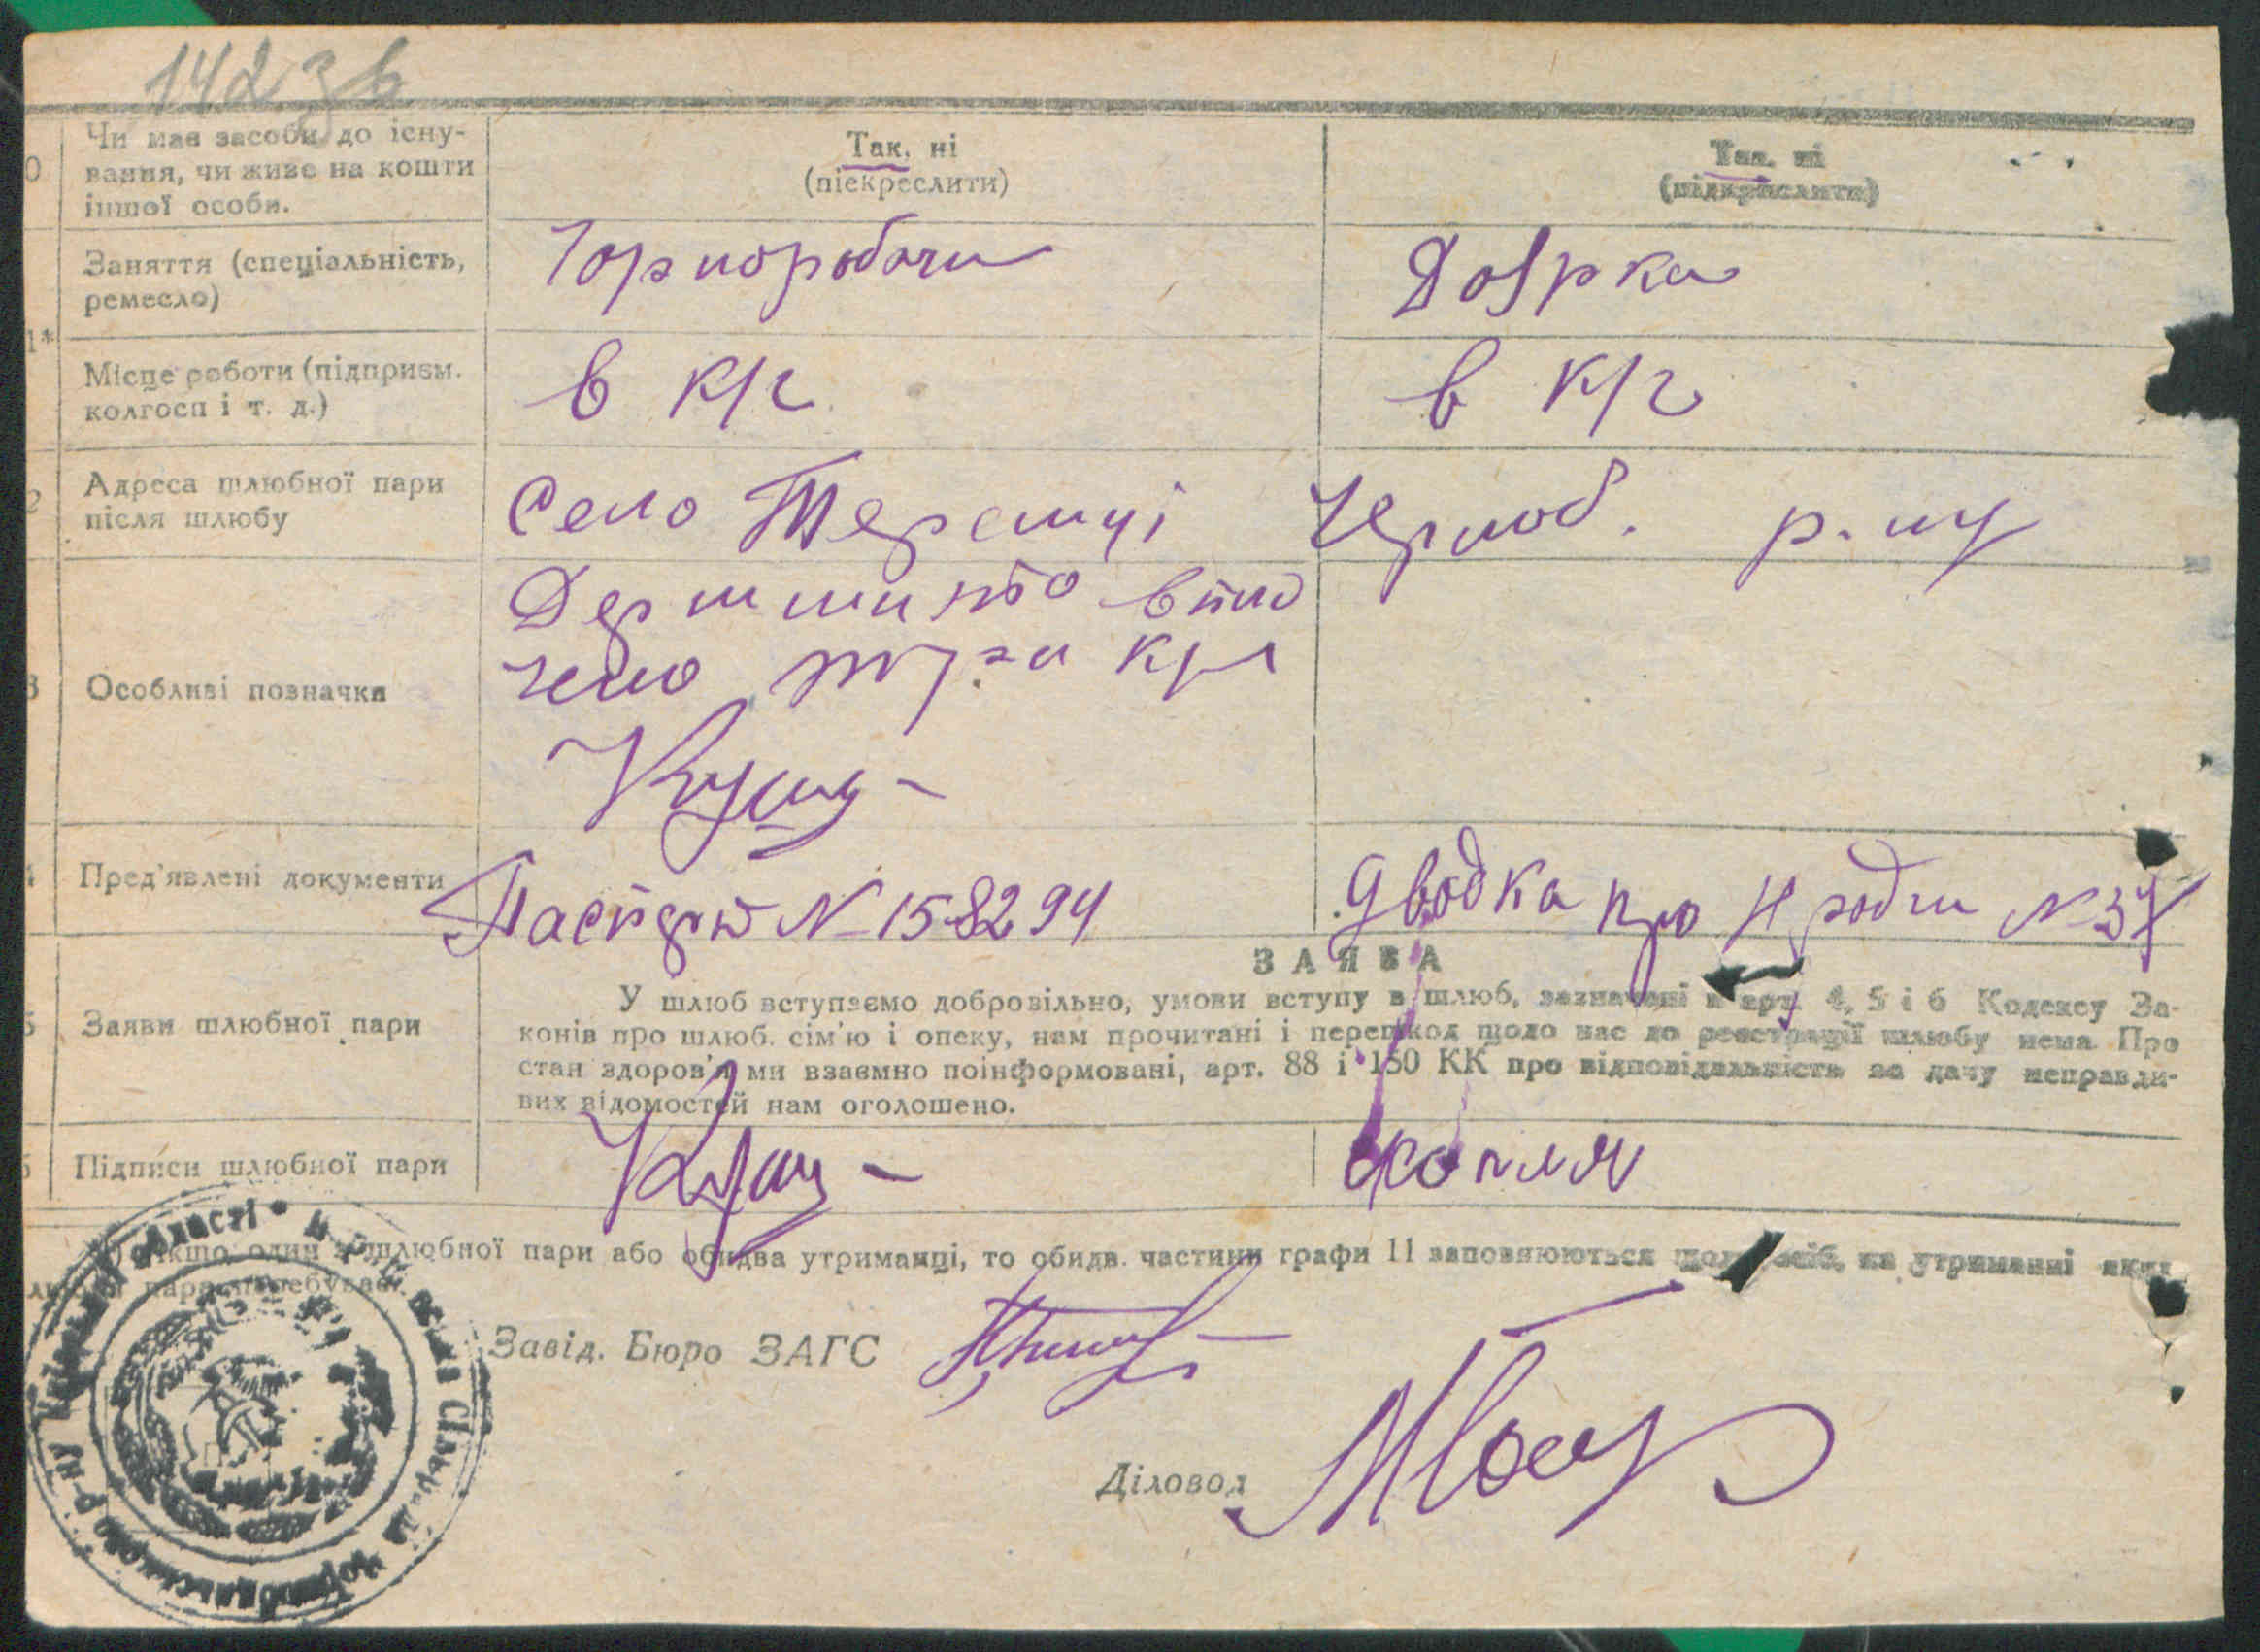 142 зв
0
Чи має засоби до існу-
вання, чи живе на кошти
іншої особи.
Так, ні
(піекреслити)
Так, ні
(підкреслити)
1*
Заняття (спеціальність,
ремесло)
Чорноробочи
Доярка
Місце роботи (підприєм.
колгосп і т. д.)
в к/г
в к/г
2
Адреса шлюбної пари
після шлюбу
Село Теремці Чорноб. р-ну
3
Особливі позначки
Держмито
4
Пред'явлені документи
Паспорт № 158294
про № 37
ЗАЯВА
5
Заяви шлюбної пари
У шлюб вступаємо добровільно, умови вступу в шлюб, зазначені в арт. 4, 5 і 6 Кодексу За-
конів про шлюб. сім'ю і опеку, нам прочитані і перешкод щодо нас до реєстрації шлюбу нема. Про
стан здоров'я ми взаємно поінформовані, арт. 88 і 150 КК про відповідальність за дачу неправди-
вих відомостей нам оголошено.
6
Підписи шлюбної пари
*) Якщо один з шлюбної пари або обидва утриманці, то обидв. частини графи 11 заповнюються щодо осіб, на утриманні яких
шлюбна пара перебуває.
Завід. Бюро ЗАГС
Діловод
р-ну Київської області
Сільрада Чорнобильського